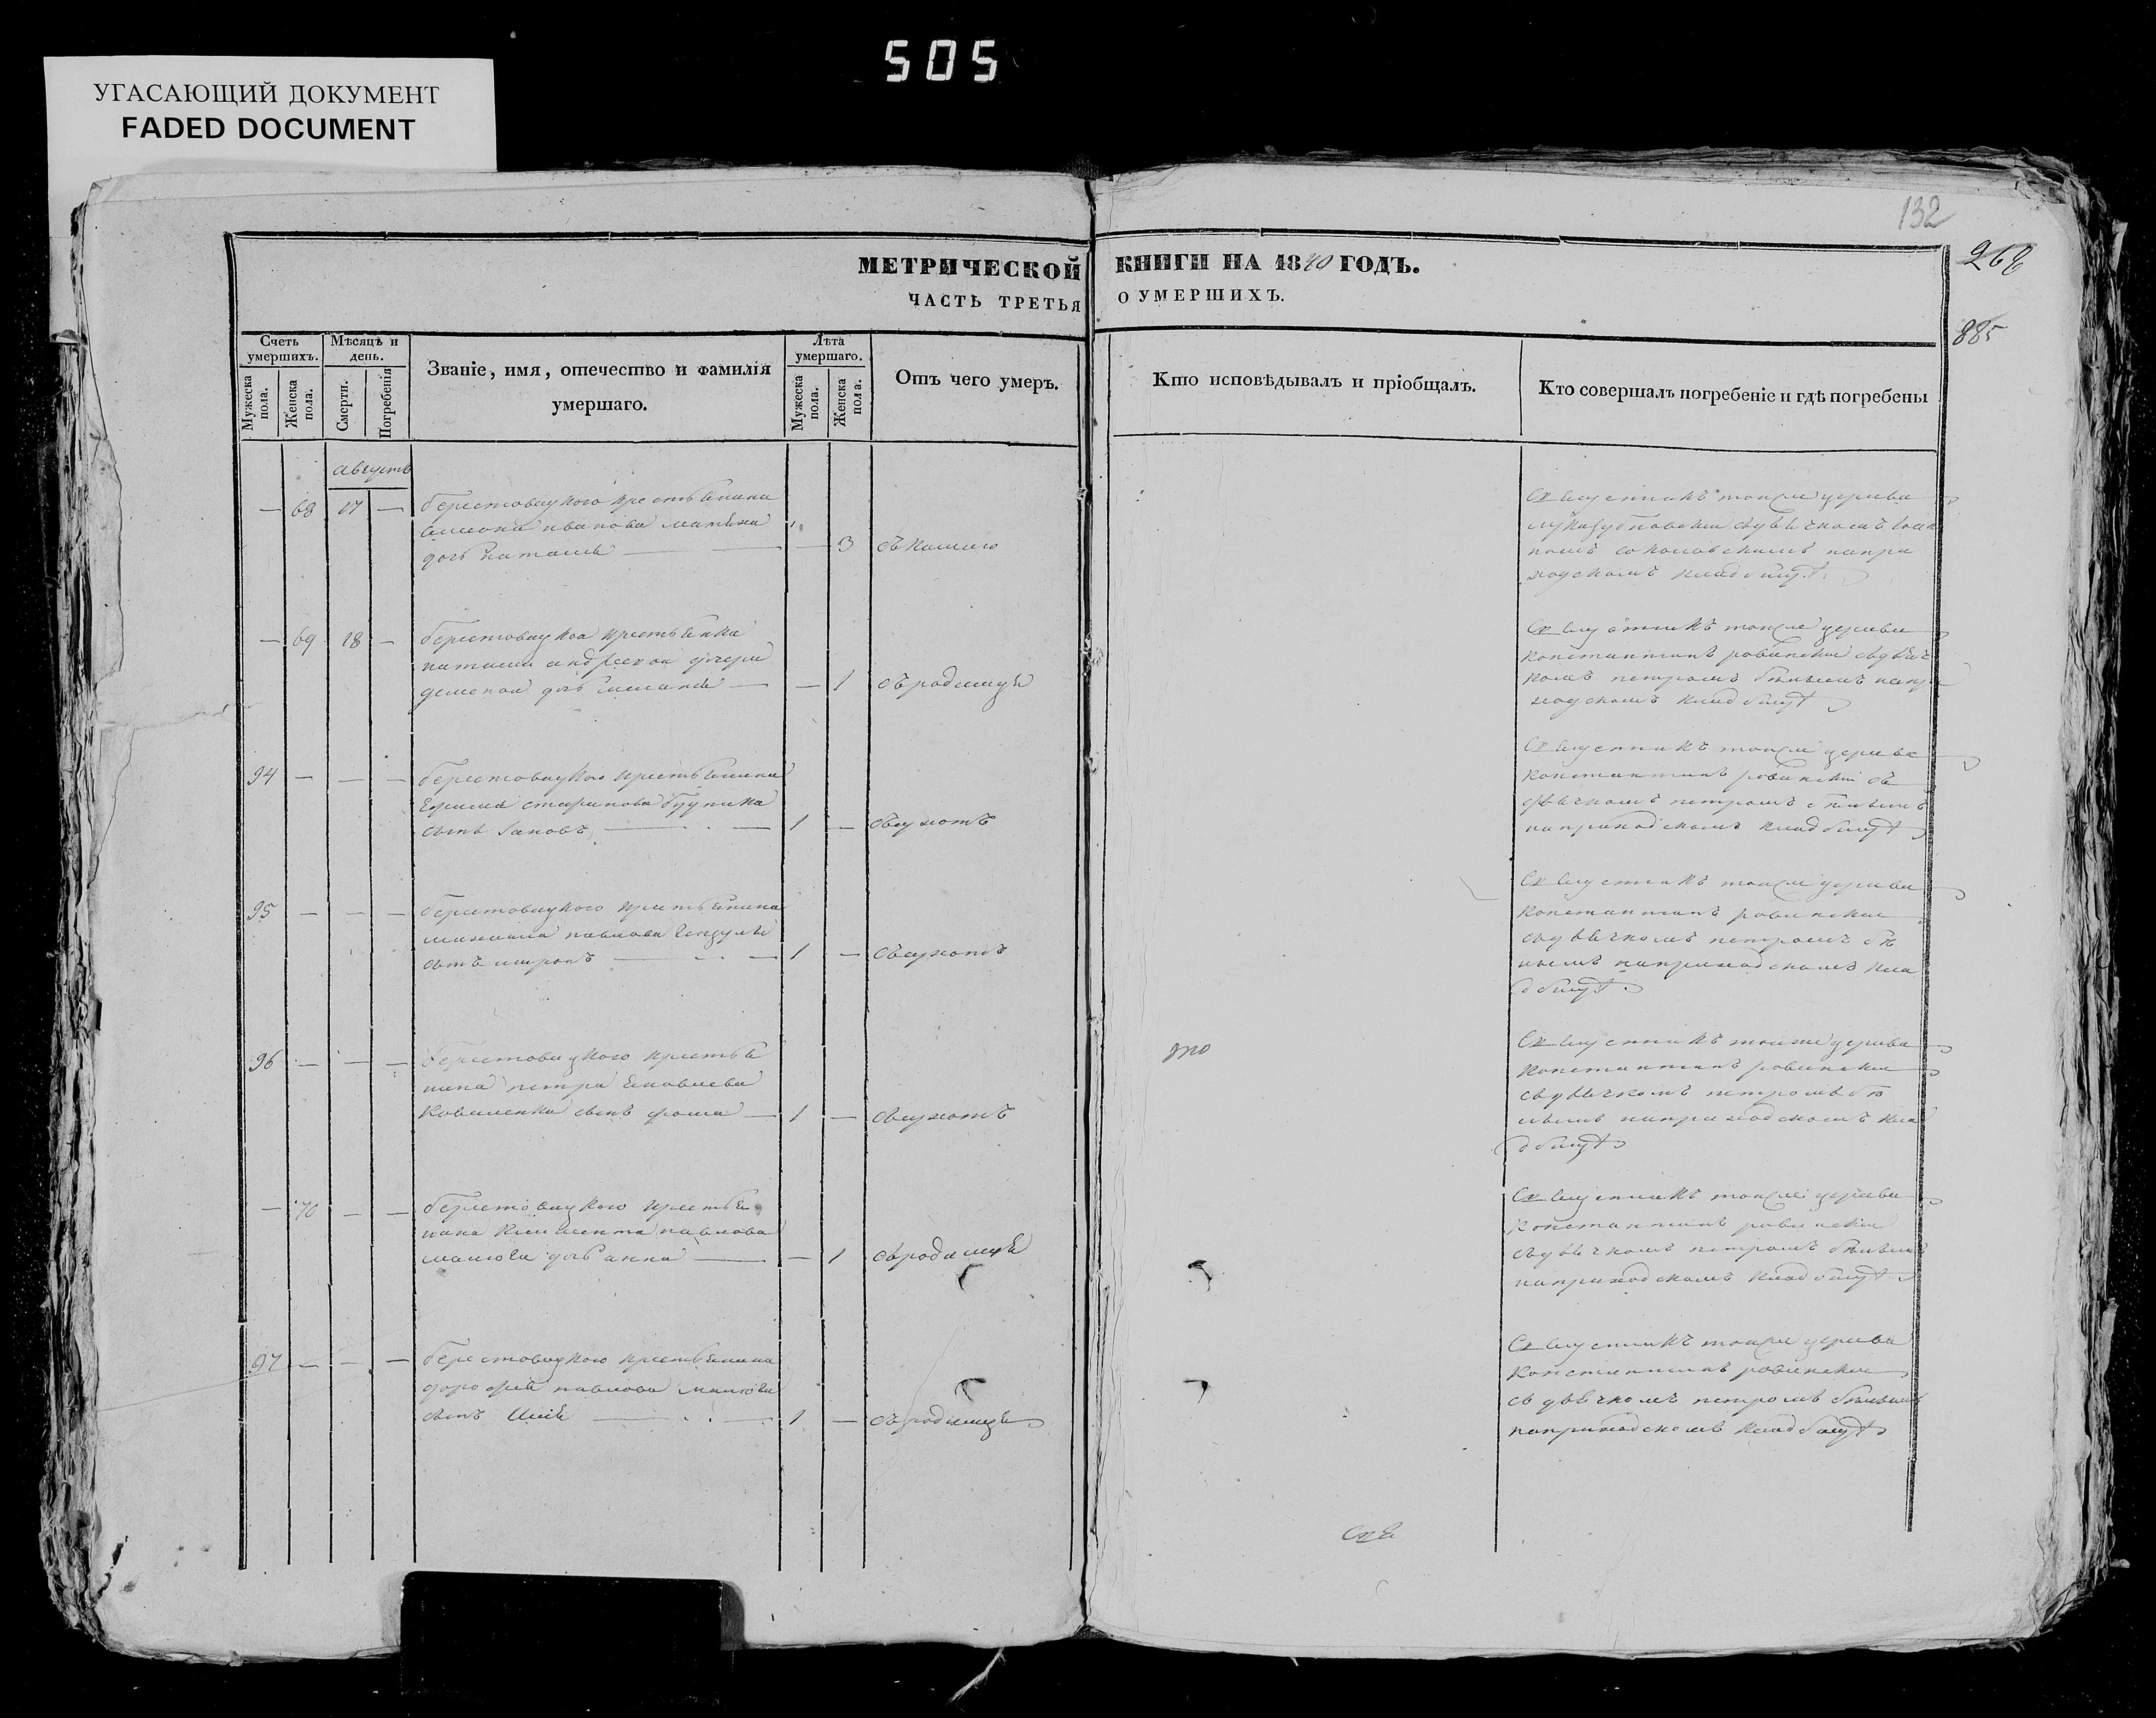 505
УГАСАЮЩИЙ ДОКУМЕНТ
FADED DOCUMENT
132
268
885
МЕТРИЧЕСКОЙ КНИГИ НА 1840 ГОДЪ.
ЧАСТЬ ТРЕТЬЯ О УМЕРШИХЪ.
Счетъ умершихъ.
Мужеска пола.
Женска пола.
Мѣсяцъ и день.
Смерти.
Погребенія
Званіе, имя, отечество и фамилія
умершаго.
Лѣта умершаго.
Мужеска пола.
Женска пола.
Отъ чего умеръ.
Кто исповѣдывалъ и пріобщалъ.
Кто совершалъ погребеніе и гдѣ погребены
августъ
— 68 17 — берестовецкого крестьянина
семена иванова
дочь наталия — — 3 съ кашлю
священникъ тояже церкви
лука
приходскомъ кладбищѣ
— 69 18 — берестовецкоя крестьянки
наталии андреевой дочери
— 1 съ родимца
священникъ тояже церкви
константинъ ровинский съ дьяч
комъ петромъ бѣлымъ на при
ходскомъ кладбищѣ
94 — — — берестовецкого крестьянина
сынъ Іаковъ — 1 — сухотъ
священникъ тояже церкви
константинъ ровинский съ
дьячкомъ петромъ бѣлымъ
на приходскомъ кладбищѣ
95 — — — берестовецкого крестьянина
михаила павлова
сынъ миронъ — 1 — сухотъ
священникъ тояже церкви
константинъ ровинский
съ дьячкомъ петромъ бѣ
лымъ на приходскомъ кла
дбищѣ
96 — — — берестовецкого крестья
нина петра яковлева
коваленка сынъ фома — 1 — сухотъ
священникъ тояже церкви
константинъ ровинский
съ дьячкомъ петромъ бѣ
лымъ на приходскомъ кла
дбищѣ
— 70 — — берестовецкого крестья
нина климента павлова
малюги дочь анна — — 1 съ родимца
священникъ тояже церкви
константинъ ровинский
съ дьячкомъ петромъ бѣлымъ
на приходскомъ кладбищѣ
97 — — — берестовецкого крестьянина
дорофея павлова малюги
сынъ Илія — 1 — съ родимца
священникъ тояже церкви
константинъ ровинский
съ дьячкомъ петромъ бѣлымъ
на приходскомъ кладбищѣ